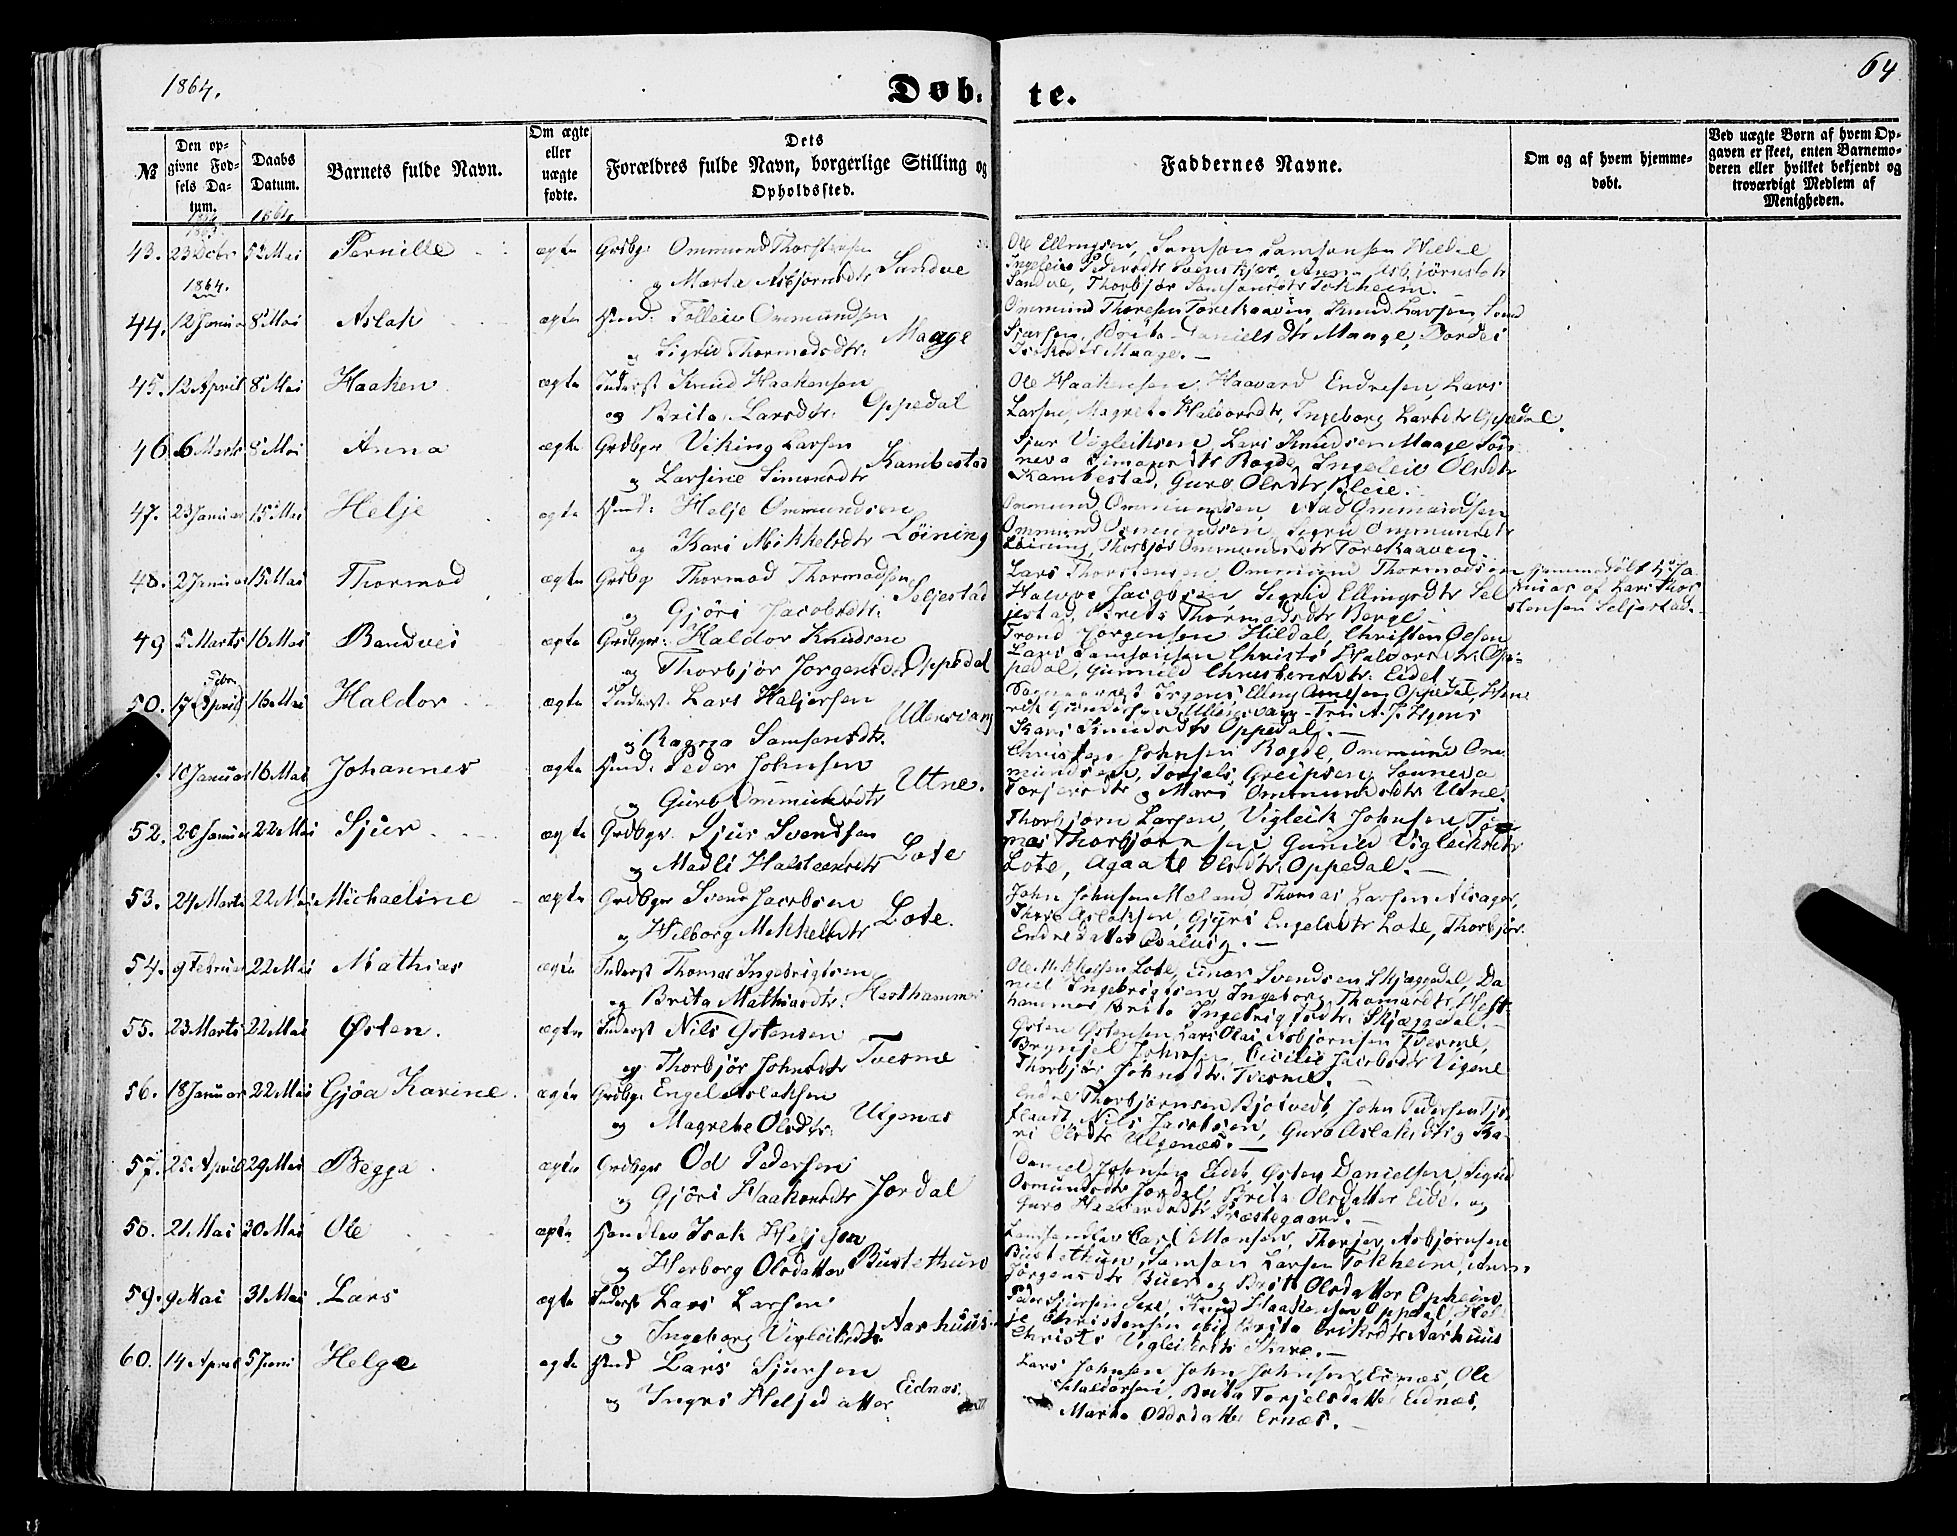 1864.
Døb-te.
64
№
Den op-
givne Fød-
sels Da-
tum.
Daabs
Datum.
Barnets fulde Navn.
Om ægte
eller
uægte
fødte.
Dets
Forældres fulde Navn, borgerlige Stilling og
Opholdssted.
Faddernes Navne.
Om og af hvem hjemme-
døbt.
Ved uægte Børn af hvem Op-
gaven er skeet, enten Barnemo-
deren eller hvilket bekjendt og
troværdigt Medlem af
Menigheden.
1863. 1864.
43. 23 Dcbr 5te Mai Pernille ægte Grdbgr Ommund Thorstensen
og Marta Asbjørnsdtr Sandve
Ole Ellingsen, Samson Samsonsen Hildal
Pedersdtr Anna Asbjørnsdtr
Sandve, Thorbjør Samsonsdtr Tokheim.
1864.
44. 12 Januar 8 Mai Aslak ægte Huusd: Tolleiv Ommundsen
og Sigrid Thormodsdtr. Maage
Ommund Thoresen Knud Larsen
Sjursen, Brita Danielsdtr Maage, Bordei
Isaksdtr Maage. —
45. 12 April 8 Mai Haaken ægte Inderst Knud Haakensen
og Brita Larsdtr. Oppedal
Ole Haakensen, Haavard Endresen, Lars
Larsen, Magreta Haldorsdtr, Ingeborg Larsdtr Oppedal.
46 6 Marts 8 Mai Anna ægte Grdbgr Viking Larsen
og Larsine Simonsdtr Kambestad
Sjur Vigleiksen, Lars Knudsen Maage
Simonsdtr Ragde, Ingeleiv Olsdtr
Kambestad, Guro Olsdtr Bleie.
47. 23 Januar 15 Mai Helje ægte Helje Ommundsen
og Kari Mikkelsdtr Löining
Ommund Ommundsen, Aad Ommundsen
Ommund Ommundsen, Sigrid Ommundsdtr
Löining, Thorbjør Ommundsdtr
48. 2 Januar 15 Mai Thormod ægte Grdbgr Thormod Thormodsen
og Gjöri Jacobsdtr. Seljestad
Lars Thorstensen, Ommund Thormodsen
Jacobsen Sigrid Ellingsdtr Sel-
jestad, Brita Thormodsdtr Berge —
hjemmedöbt 4de Ja-
nuar af Lars Thor-
stensen Seljestad.
49 5 Marts 16 Mai Bandvei ægte Grdbgr: Haldor Knudsen
og Thorbjør Jorgensdtr Oppedal
Trond Jorgensen Hildal, Christen Olsen
Lars Samsonsen Christi Haldorsdtr. Op-
pedal, Gunnild Christensdtr. Eidet —
50. 17 (April) Febr. 16 Mai Haldor ægte Inderst: Lars Haljersen
og Ragna Samsonsdtr. Ullensvang
Irgens, Elling Oppedal,
Ullensvang,
Kari Knudsdtr Oppedal. —
10 Januar 16 Mai Johannes ægte Peder Johnsen
og Guro Ommundsdtr Utne.
Christen Johnsen Ragde, Ommund Om-
mundsen, Torjels Greipsen, Sønneva
Torjersdtr og Mari Ommundsdtr Utne.
52. 20 Januar 22 Mai Sjur ægte Grdbgr. Sjur Svendsen
og Madli Halsteensdtr Lote
Thorbjørn Larsen, Vigleik Johnsen, Tho-
mas Thorbjørnsen Gunild Vigleiksdtr
Lote, Agaate Olsdtr. Oppedal. —
53. 24 Marts 22 Mai Michaeline ægte Grdbgr Svend Jacobsen
og Wilborg Mikkelsdtr Lote.
John Johnsen Mæland Thomas Larsen Alsager,
Aslaksen, Gjyri Engelsdtr Lote, Thorbjør
Endresdatter —
54. 9 Februar 22 Mai Mathias ægte Inderst Thomas Ingebrigtsen
og Brita Mathiasdtr. Hesthammer
Ole Lote, Einar Svendsen Skjæggedal, Da-
niel Ingebrigtsen, Ingeborg Thomasdtr Hest-
hammer Brita Ingebrigtsdtr. Skjæggedal. —
55. 23 Marts 22 Mai Østen. ægte Inderst Nils Ostensen
og Thorbjør Johnsdtr Tvesme
Osten Ostensen, Lars Olai Asbjørnsen Tvesme,
Brynjel Johnsen, Cicilie Jacobsdtr Vigene
Thorbjør Johnsdtr. Tvesme. —
56. 18 Januar 22 Mai Gjøa Karine ægte Grdbgr Engel Aslaksen
og Magrethe Olsdtr. Utgenæs
Endre Thorbjørnsen Bjotvedt, John Pedersen Tjo-
flaadt, Nils Jacobsen, Guro Aslaksdtr og Ka-
ri Olsdtr Utgenæs. —
57. 25 April 29 Mai Begga ægte Grdbgr Od Pedersen
og Gjöri Haakensdtr Jordal
Daniel Johnsen Eide, Osten Danielsen, Sigrid
Osmundsdtr Jordal, Brita Olsdatter Eide og
Guro Haavardsdtr Præstegaard. —
58. 21 Mai 30 Mai Ole ægte Handlev Isak Heljesen
og Herborg Olsdatter Bustethun
Carl Monsen, Thorjer Asbjørnsen
Bustethun, Samson Larsen Tokheim,
Jörgensdtr Buer og Brita Olsdatter Opheim
59. 9 Mai 31 Mai Lars ægte Inderst Lars Larsen
og Ingeborg Vigleiksdtr Aarhuus
Peder Sjursen Sexe, Knud Haakensen Oppedal, Hel-
je Christensen ibid Brita Eriksdtr Aarhuus
Christi Vigleiksdtr Skare. —
60. 14 April 5 Juni Helge ægte Lars Sjursen
og Ingri Heljedatter Eidnæs.
Lars Johnsen, John Johnsen, Ernæs, Ole
Haldorsen, Brita Torjelsdatter Eidnæs,
Marta Oddsdatter Ernæs. —